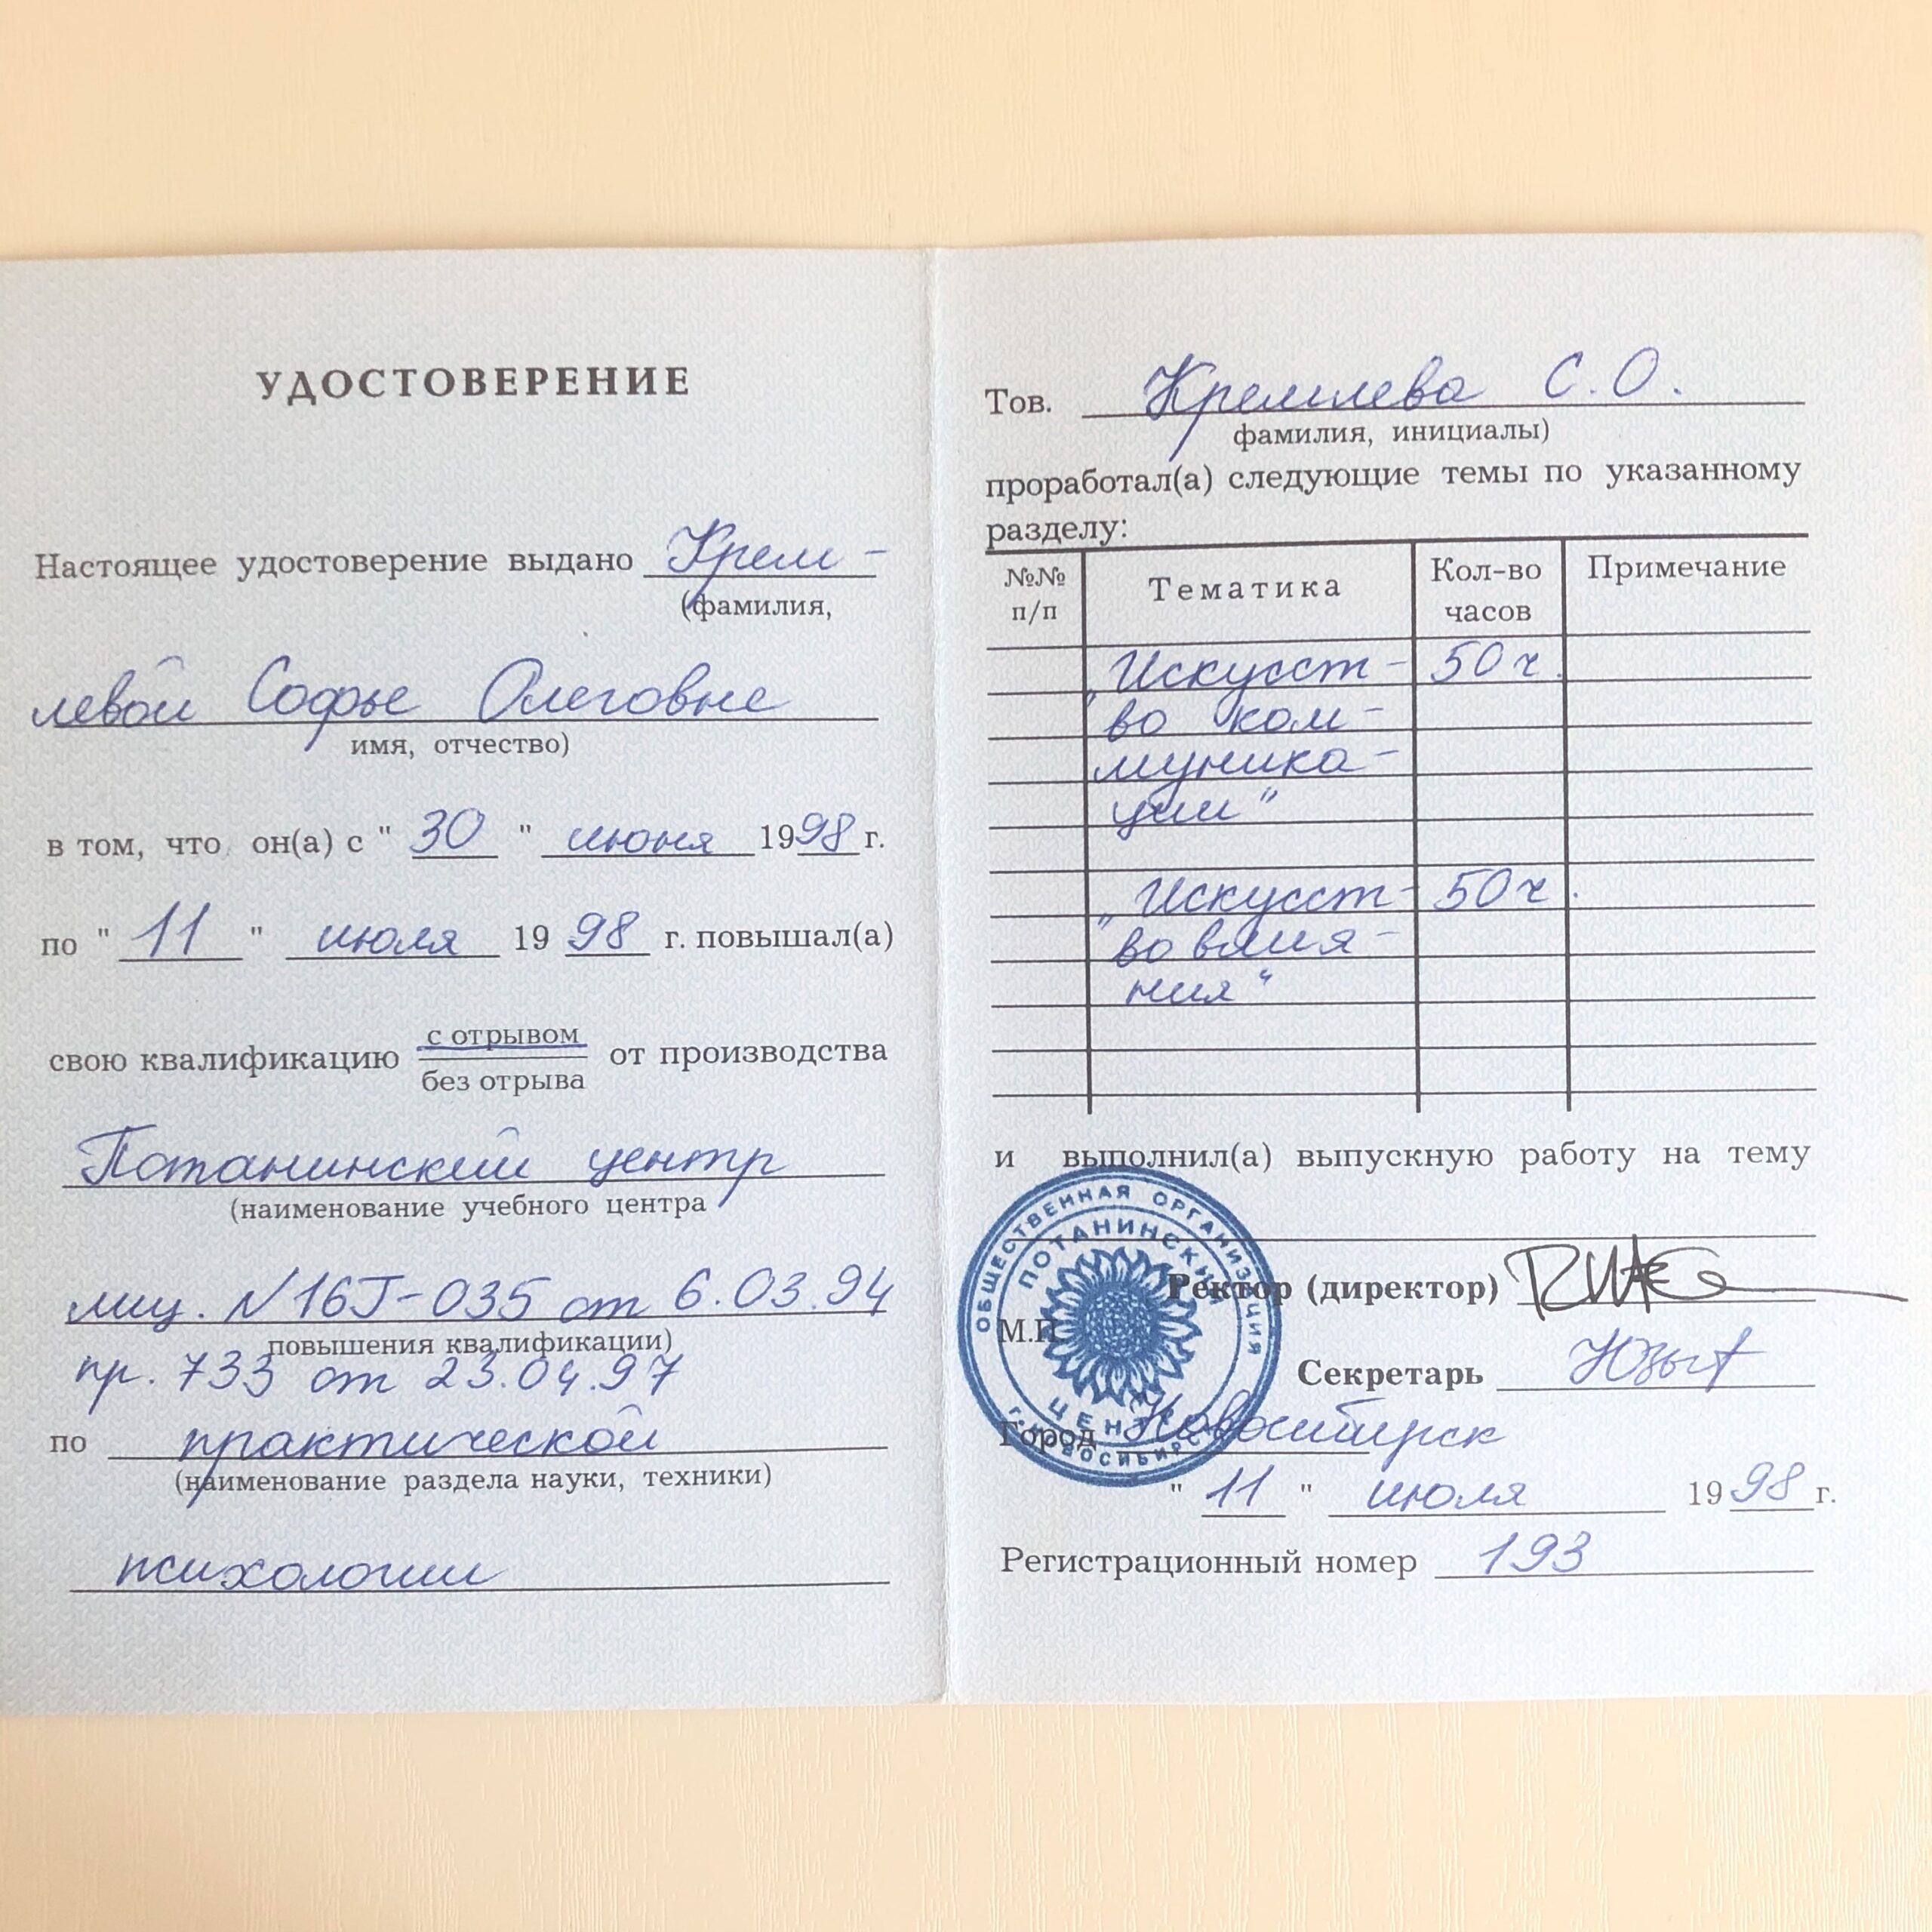 УДОСТОВЕРЕНИЕ
Настоящее удостоверение выдано Крем-
(фамилия,
левой Софье Олеговне
имя, отчество)
в том, что он(а) с "30" июня 1998 г.
по "11" июля 1998 г. повышал(а)
свою квалификацию с отрывом от производства
без отрыва
Потанинский центр
(наименование учебного центра
лиц. N 16J-035 от 6.03.94
повышения квалификации)
пр. 733 от 23.04.97
по практической
(наименование раздела науки, техники)
психологии
Тов. Кремлева С.О.
фамилия, инициалы)
проработал(а) следующие темы по указанному
разделу:
№№ Тематика Кол-во Примечание
п/п часов
„Искусст- 50 ч.
во ком-
муника-
ции"
„Искусст- 50 ч.
во влия-
ния"
и выполнил(а) выпускную работу на тему
ОБЩЕСТВЕННАЯ ОРГАНИЗАЦИЯ
ПОТАНИНСКИЙ
ЦЕНТР
Г. НОВОСИБИРСК
Ректор (директор)
М.П.
Секретарь
Город Новосибирск
"11" июля 1998 г.
Регистрационный номер 193